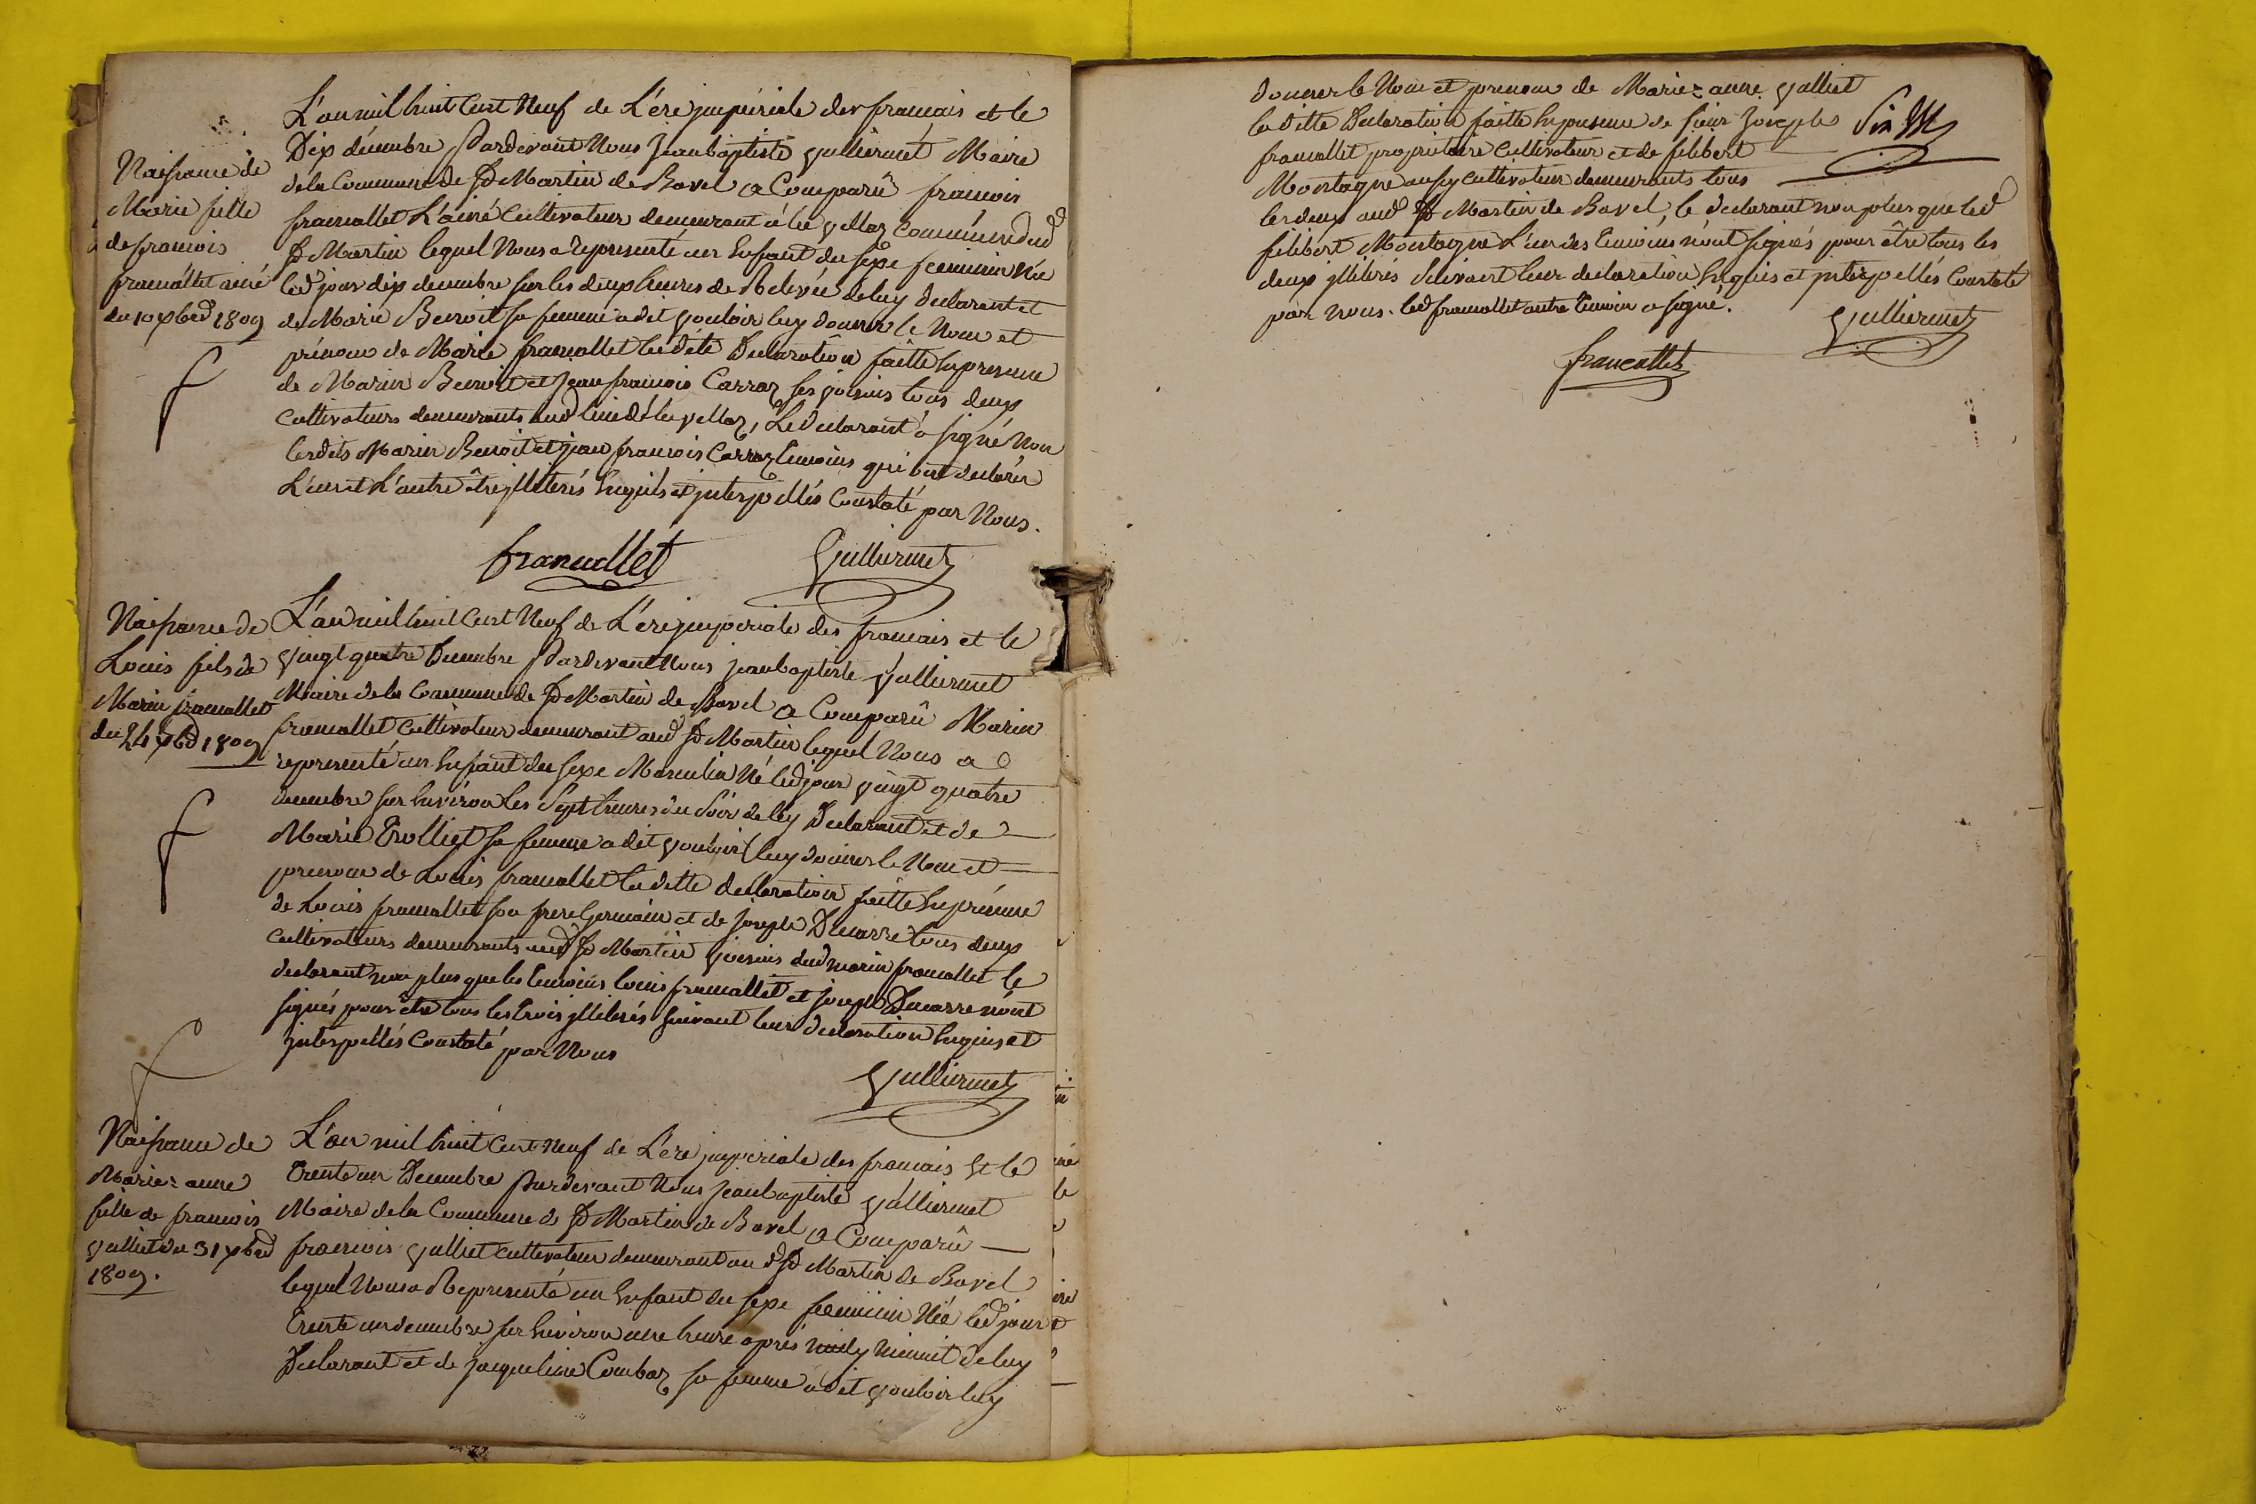 Naissance de
Marie fille
de francois
francallet ainé
du 10 xbre 1809
L'an mil huit Cent Neuf de L'ère jmpériale des francais et le
Dix décembre Pardevant Nous Jeanbaptiste Vulliermet Maire
dela Commune de St Martin de Bavel a Comparû francois
francallet L'ainé Cultivateur demeurant à la Vellaz Commune dud
St Martin lequel Nous a representé un Enfant du sexe feminin Née
led jour dix decembre sur les deux heures de Relevée de luy Declarant et
de Marie Benoit sa femme a dit Vouloir luy donner le Nom et
prénom de Marie francallet la dite Declaration faitte En presence
de Marin Benoit et Jean francois Carraz ses voisins tous deux
Cultivateurs demeurants aud lieu de la Vellaz, Le declarant a signé Non
lesdits Marin Benoit et jean francois Carraz temoins qui ont declarés
L'un et L'autre être jlliterés Enquis et jnterpellés Constaté par Nous.
francallet Vulliermet
Naissance de
Louis fils de
Marin francallet
du 24 xbre 1809
L'an mil huit Cent Neuf de L'ére jmperiale des francais et le
Vingt quatre Decembre Pardevant Nous jeanbaptiste Vulliermet
Maire dela Commune de St Martin de Bavel a Comparû Marin
francallet Cultivateur demeurant aud St Martin lequel Nous a
representé un Enfant du sexe Masculin Né led jour Vingt quatre
decembre sur Environ les Sept heures du Soir de luy Declarant et de
Marie Trolliet sa femme a dit Vouloir luy donner le Nom et
prenom de Louis francallet la ditte declaration faitte En présence
de Louis francallet son frere Germain et de Joseph Ducarre tous deux
Cultivateurs demeurants aud St Martin Voisins dud marin francallet le
declarant non plus que les temoins louis francallet et joseph Ducarre n'ont
signés pour être tous les trois jlliterés suivant leur declaration Enquis et
jnterpellés Constaté par Nous
Vulliermet
Naissance de
Marie=anne
fille de francois
Vulliet du 31 xbre
1809.
L'an mil huit Cent Neuf de L'ére jmperiale des francais Et le
trente un Decembre Pardevant Nous jeanbaptiste Vulliermet
Maire dela Commune de St Martin de Bavel a Comparû
francois Vulliet Cultivateur demeurant au d St Martin de Bavel
lequel Nous a Representé un Enfant du sexe feminin Née led jour
trente un decembre sur Environ une heure après midy Minuit de luy
Declarant et de Jacqueline Combaz sa femme a dit Vouloir luy
donner le Nom et prenom de Marie=anne Vulliet
la ditte Declaration faitte En presence de sieur Joseph
francallet proprietaire Cultivateur et de filibert
Montagne aussy Cultivateur demeurants tous
les deux aud St Martin de Bavel, le declarant non plus que led
filibert Montagne L'un des temoins n'ont signés pour être tous les
deux jlliterés Suivant leur declaration Enquis et jnterpellés Constaté
par Nous. led francallet autre temoin a signé.
Vulliermet
francallet